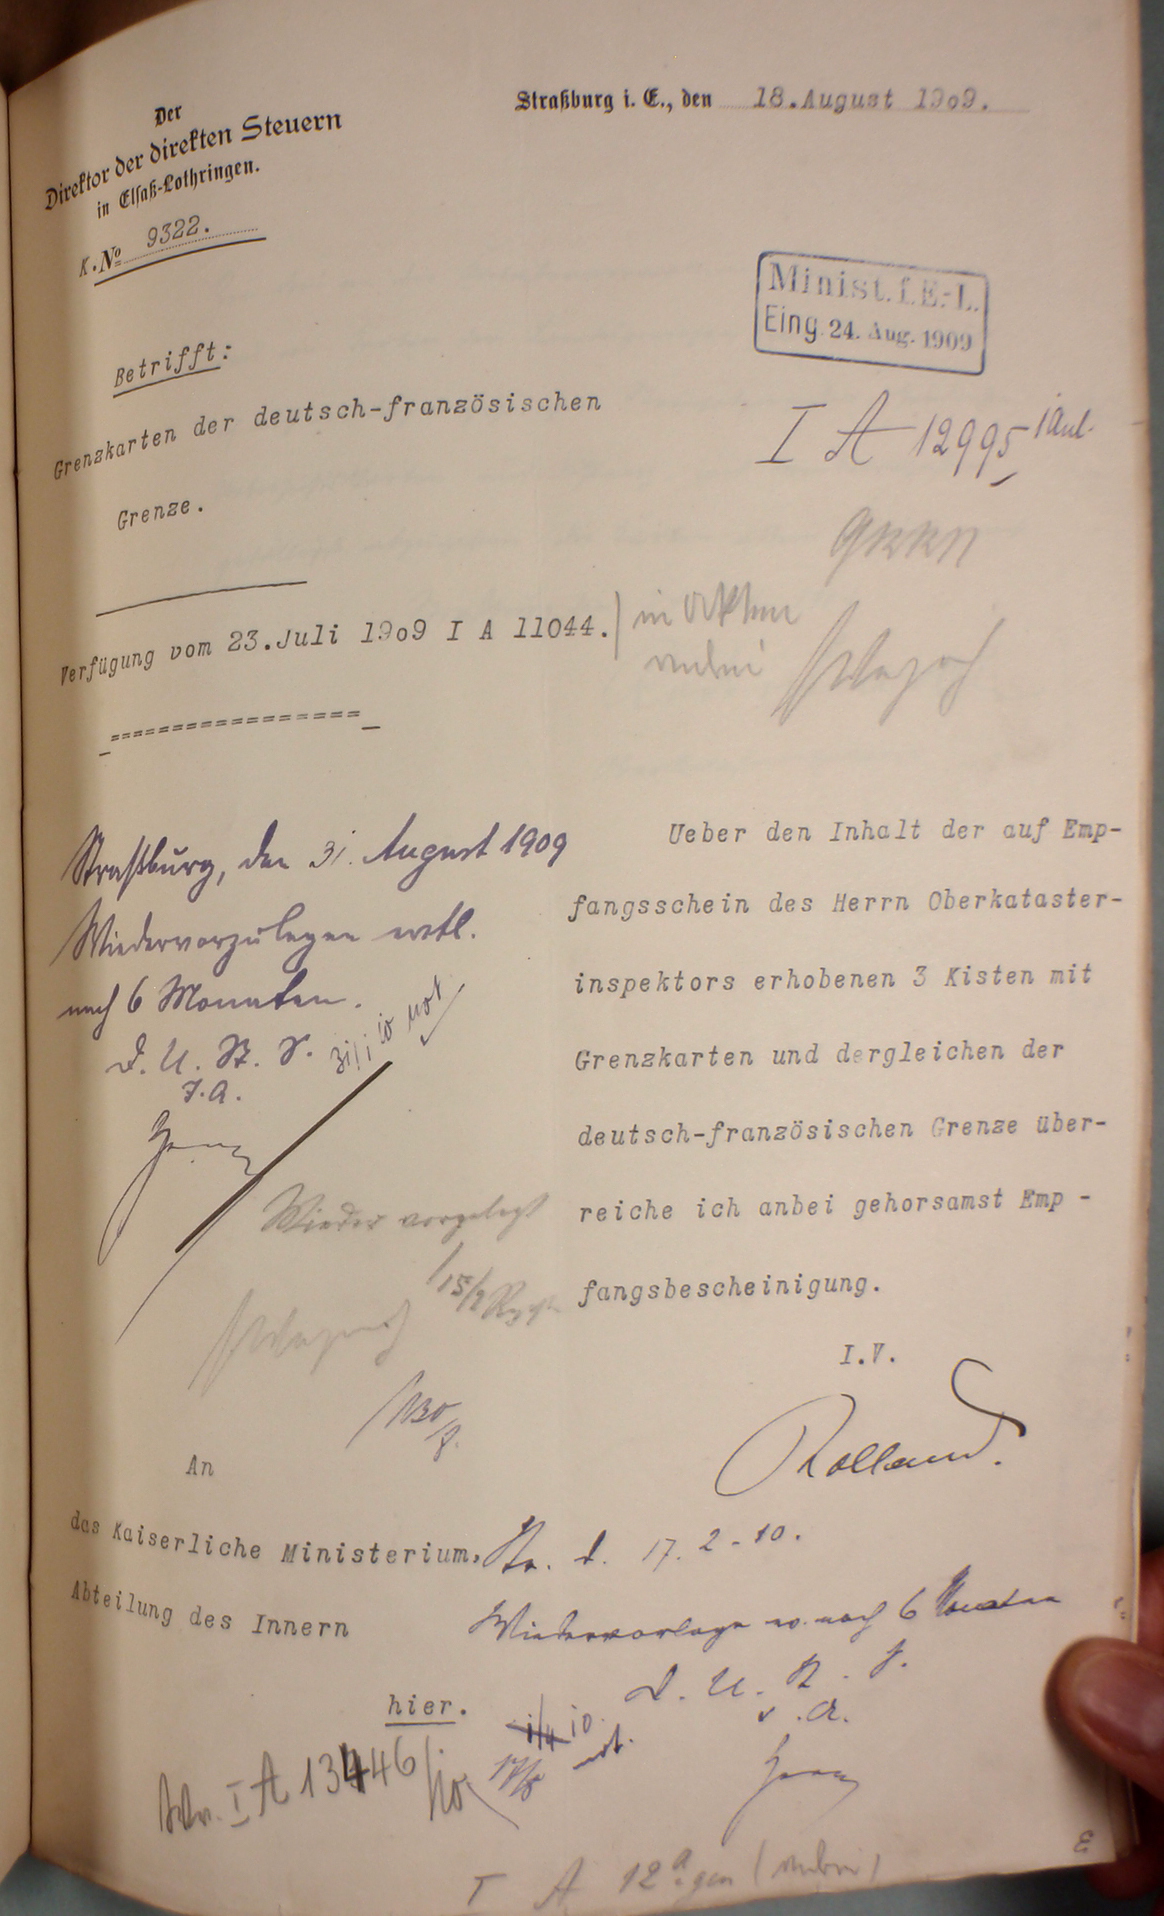 Der
Direktor der direkten Steuern
in Elsaß-Lothringen.
K. No 9322.
Straßburg i. E., den 18.August 19o9.
Minist. f. E.-L.
Eing. 24. Aug. 1909
I A 12995 1 Anl.
Betrifft:
Grenzkarten der deutsch-französischen
Grenze.
Verfügung vom 23.Juli 19o9 I A 11044.
in Akten
anbei
Straßburg, den 31. August 1909
Wiedervorzulegen
nach 6 Monaten.
D. U. St. S.
I. A.
Wieder vorgelegt
15/2
Ueber den Inhalt der auf Emp-
fangsschein des Herrn Oberkataster-
inspektors erhobenen 3 Kisten mit
Grenzkarten und dergleichen der
deutsch-französischen Grenze über-
reiche ich anbei gehorsamst Emp -
fangsbescheinigung.
I.V.
Rolland.
An
das Kaiserliche Ministerium,
Abteilung des Innern
hier.
Str. d. 17. 2. 10.
Wiedervorlage nach 6 Monaten
D. U. St. S.
I. A.
I A 13446/10
I A 12 a gen (anbei)